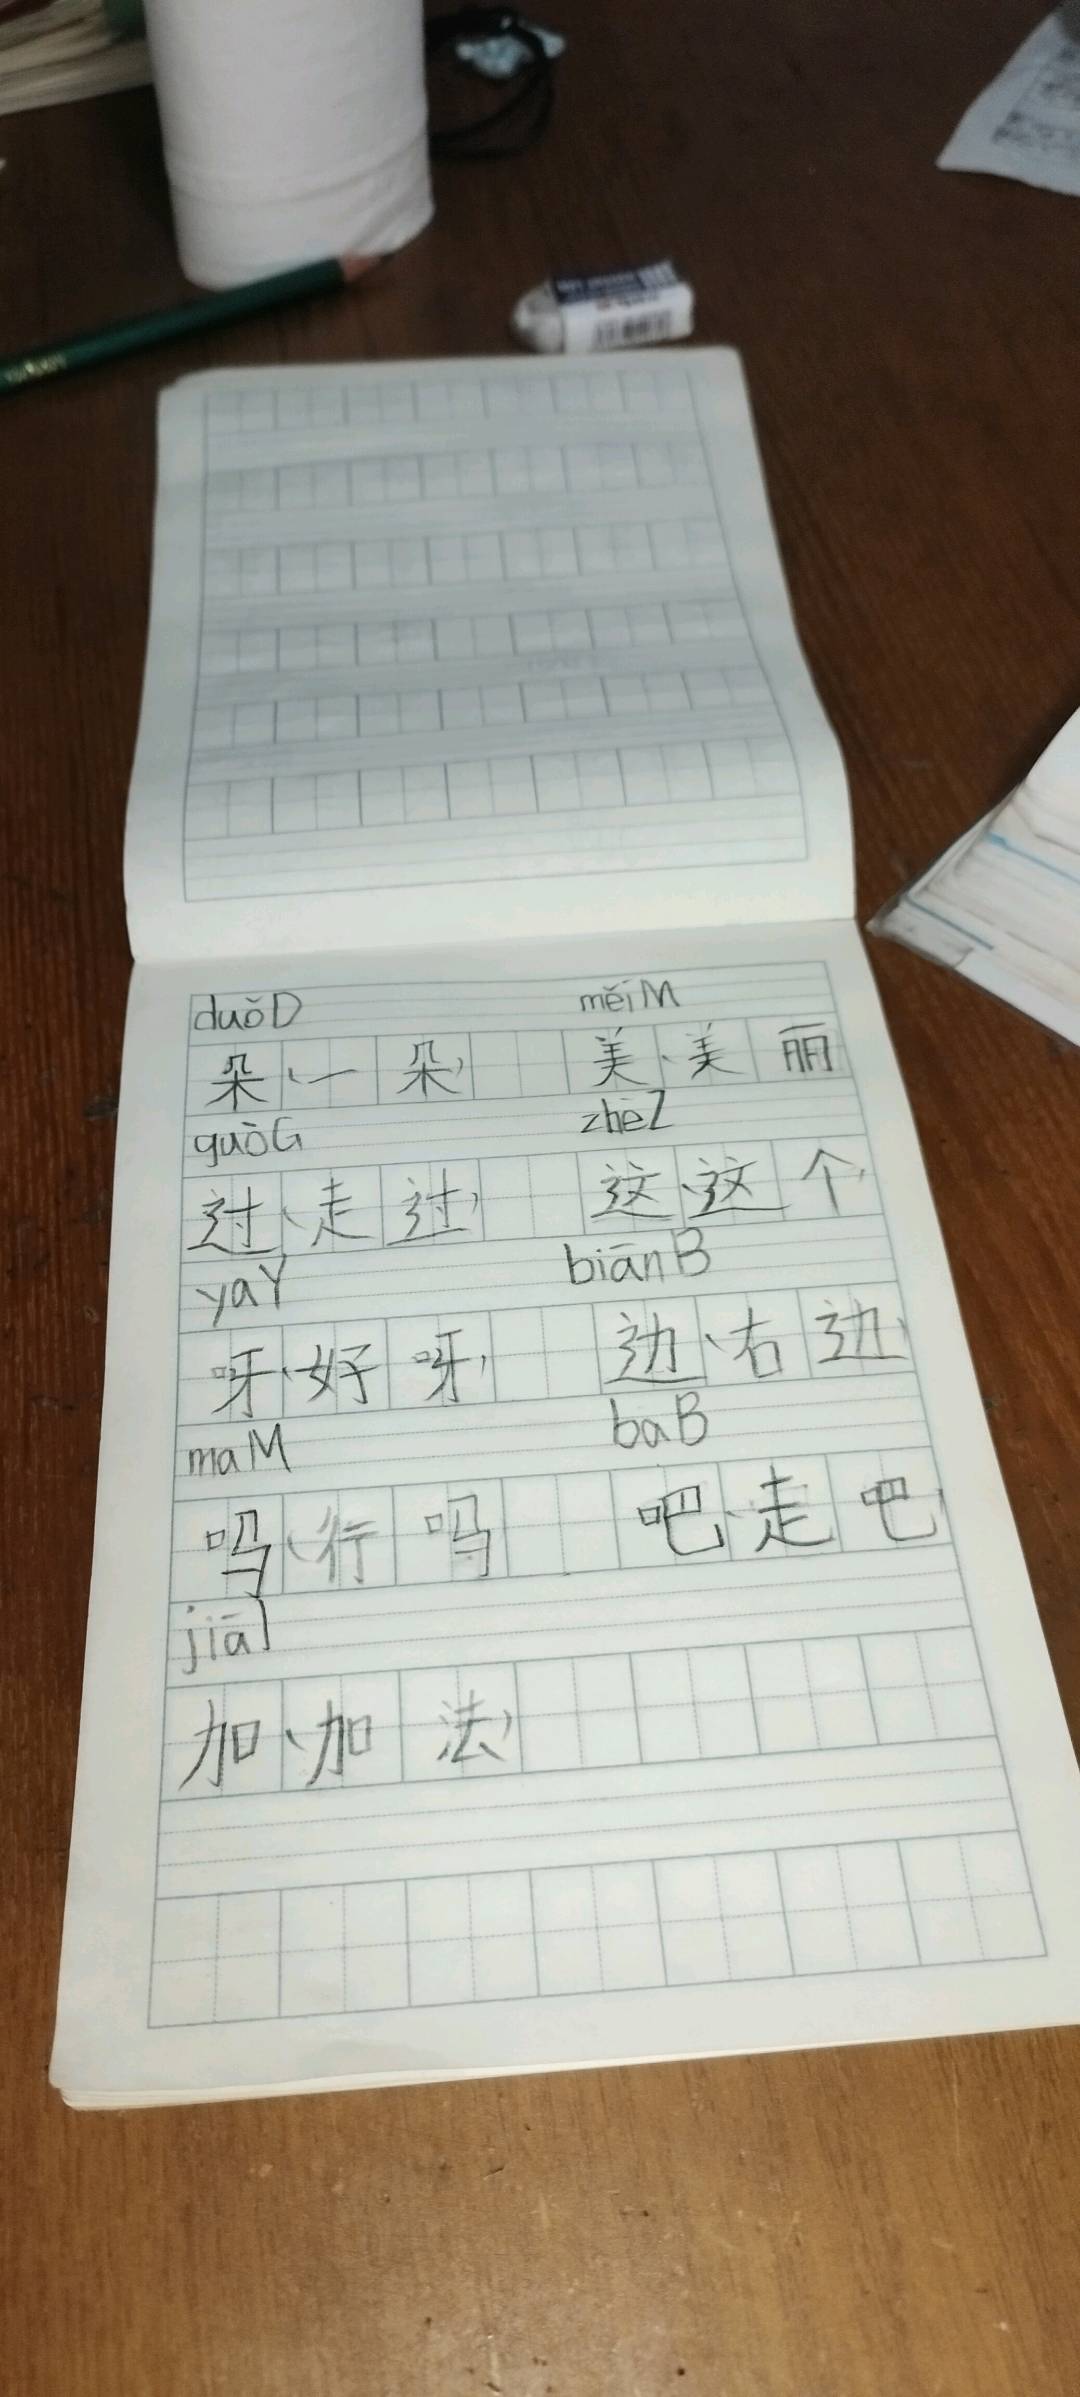 duǒD měiM
朵、一朵, 美、美丽
guòG zhèZ
过、走过, 这、这个,
yaY biānB
呀、好呀, 边、右边,
maM baB
吗、行吗 吧、走吧,
jiāJ
加、加法,